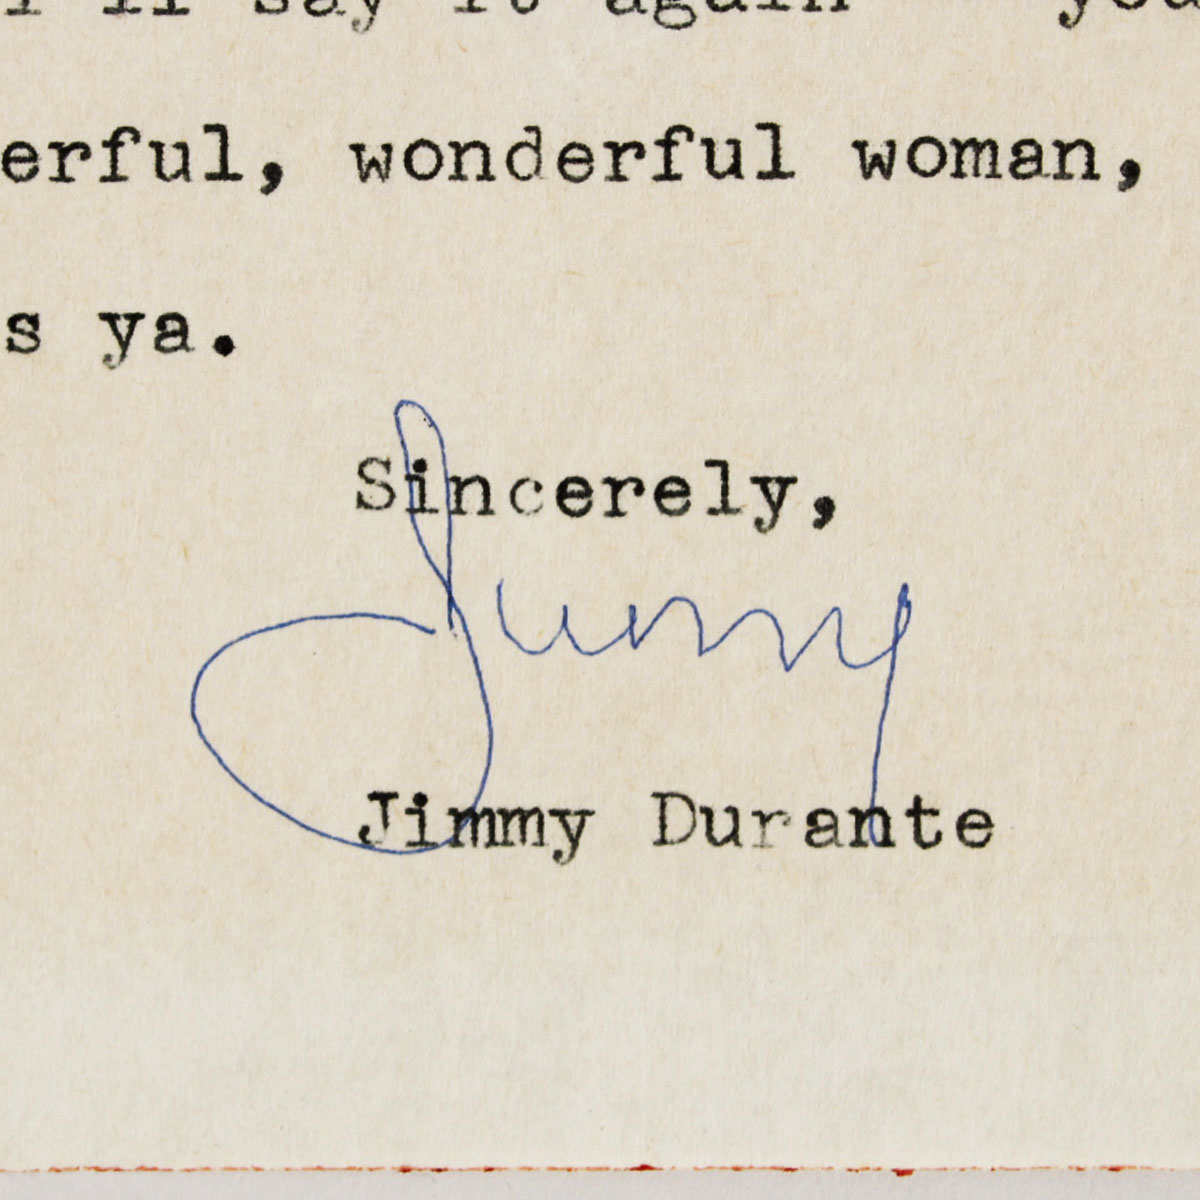 I'll say it again you
erful, wonderful woman,
s ya.
Sincerely,
Jimmy
Jimmy Durante